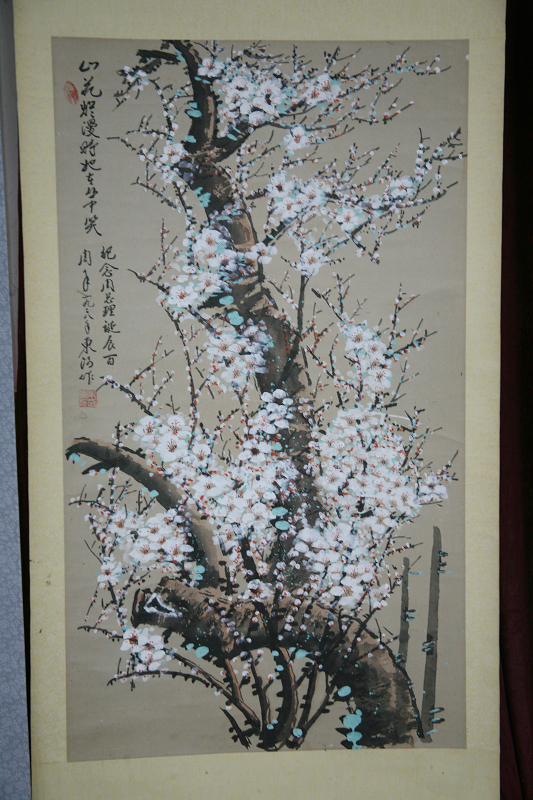 山花烂漫时她在丛中笑
纪念周总理诞辰百
周年一九九八年东河作